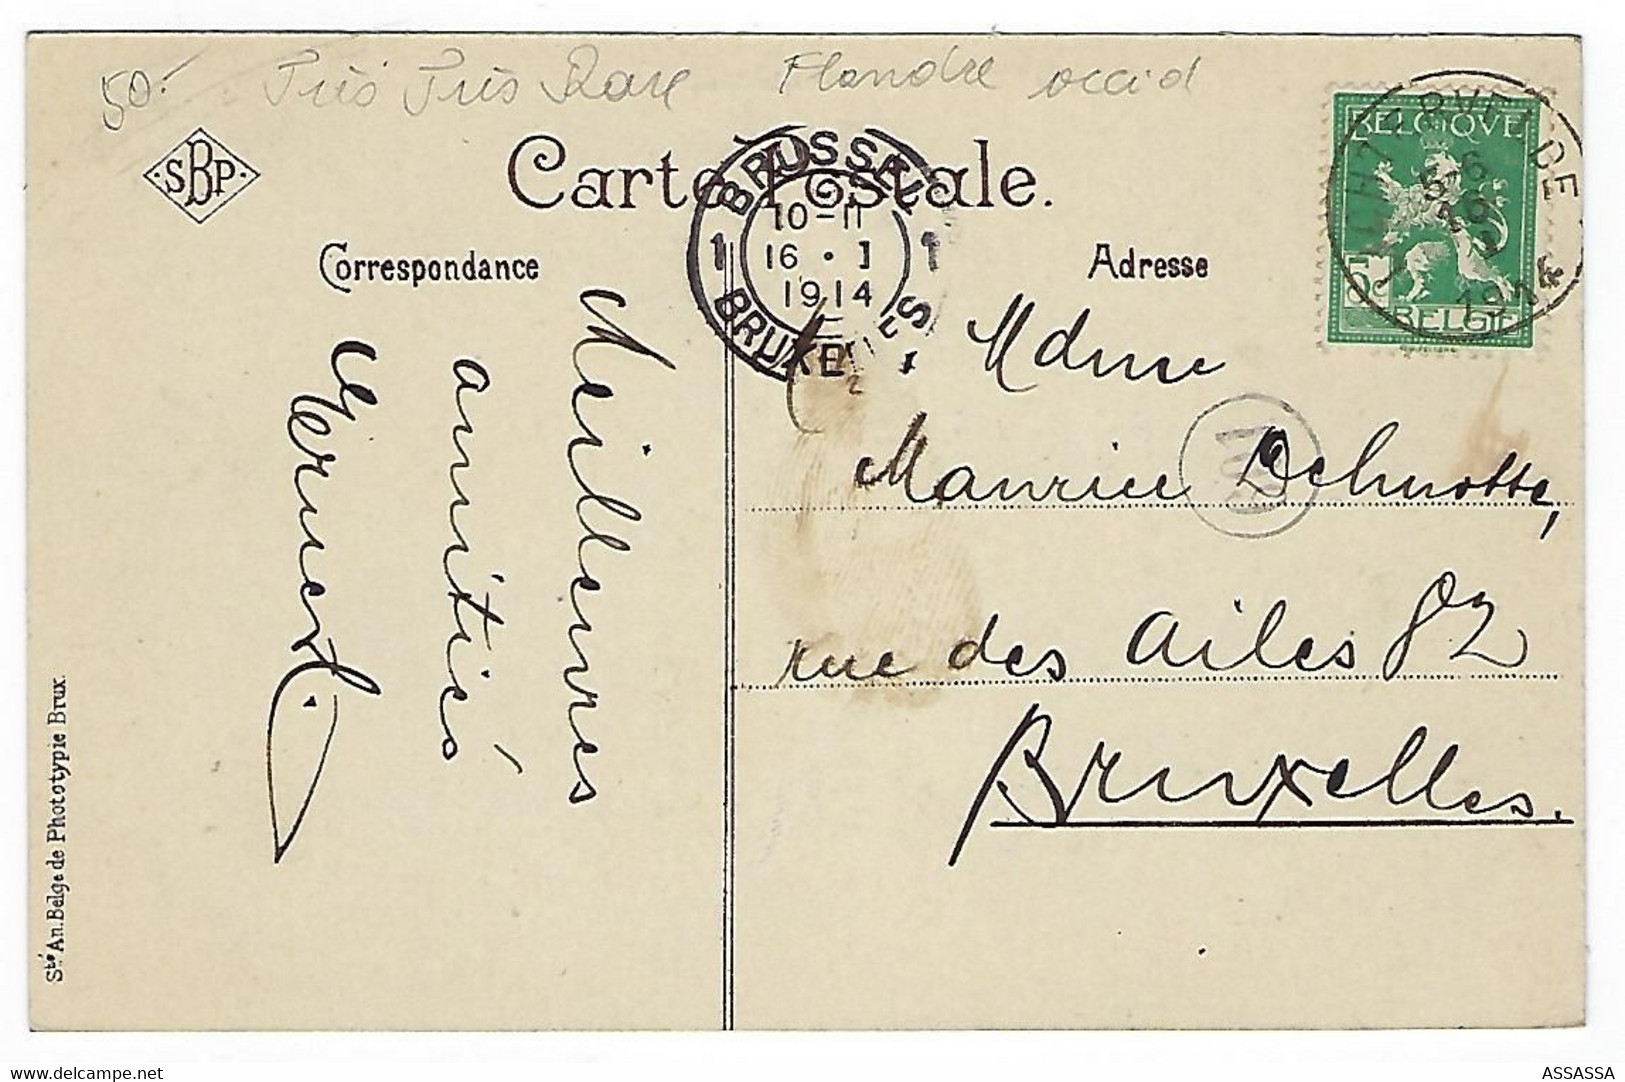 50.-
Très Très Rare Flandre occid
SBP
Carte Postale.
Correspondance
Adresse
BRUSSEL
10-11
16 · I
1914
1 1
BRUXELLES
BELGIQUE
5
BELGIË
LICHTERVELDE
1914
Meilleures
amitiés
Mdme
Maurice Delmotte,
rue des Ailes 82
Bruxelles.
Sté An. Belge de Phototypie Brux.
www.delcampe.net
ASSASSA